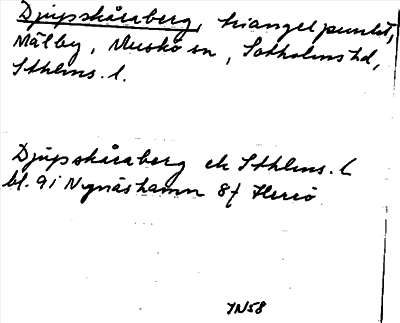 Djupskåraberg, triangelpunkt,
Mälby, Muskö sn, Sotholms hd,
Sthlms. l.
Djupskåraberg ek Sthlms. l
bl. 9i Nynäshamn 8f Herrö
YN58